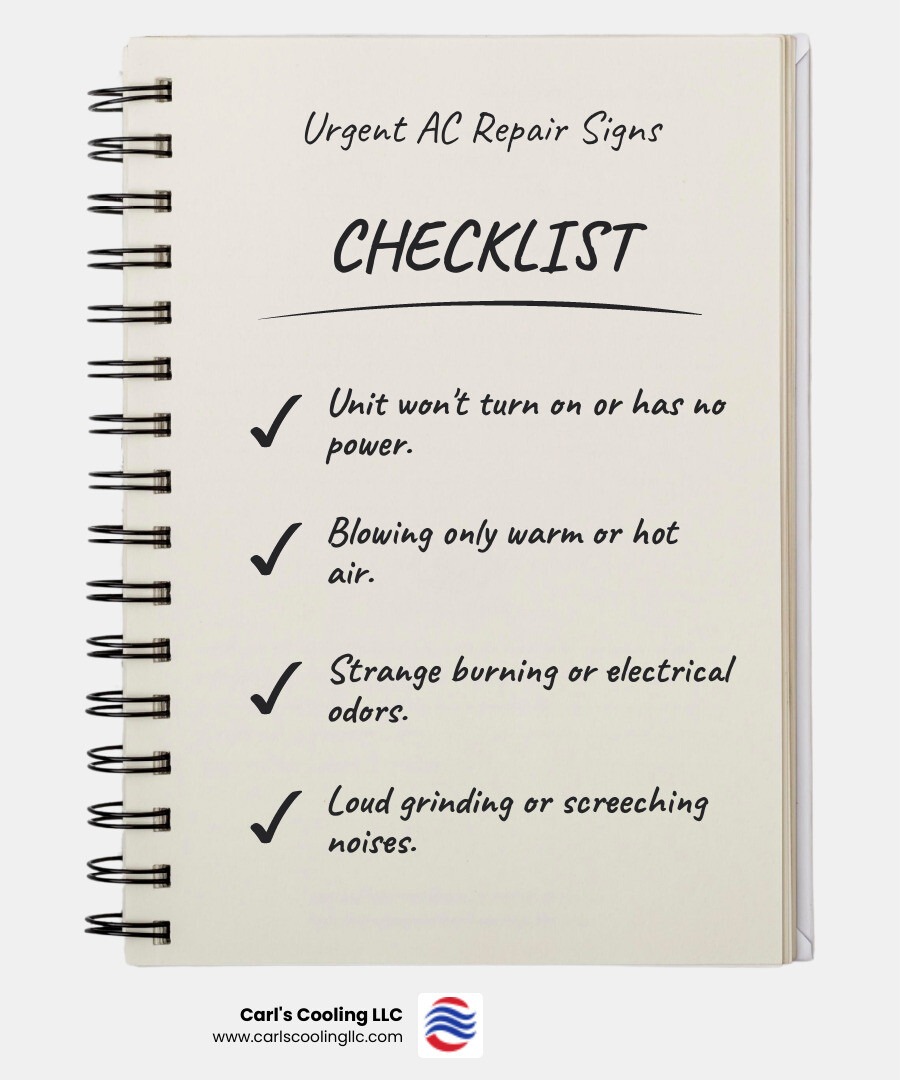 Urgent AC Repair Signs
CHECKLIST
Unit won't turn on or has no
power.
Blowing only warm or hot
air.
Strange burning or electrical
odors.
Loud grinding or screeching
noises.
Carl's Cooling LLC
www.carlscoolingllc.com